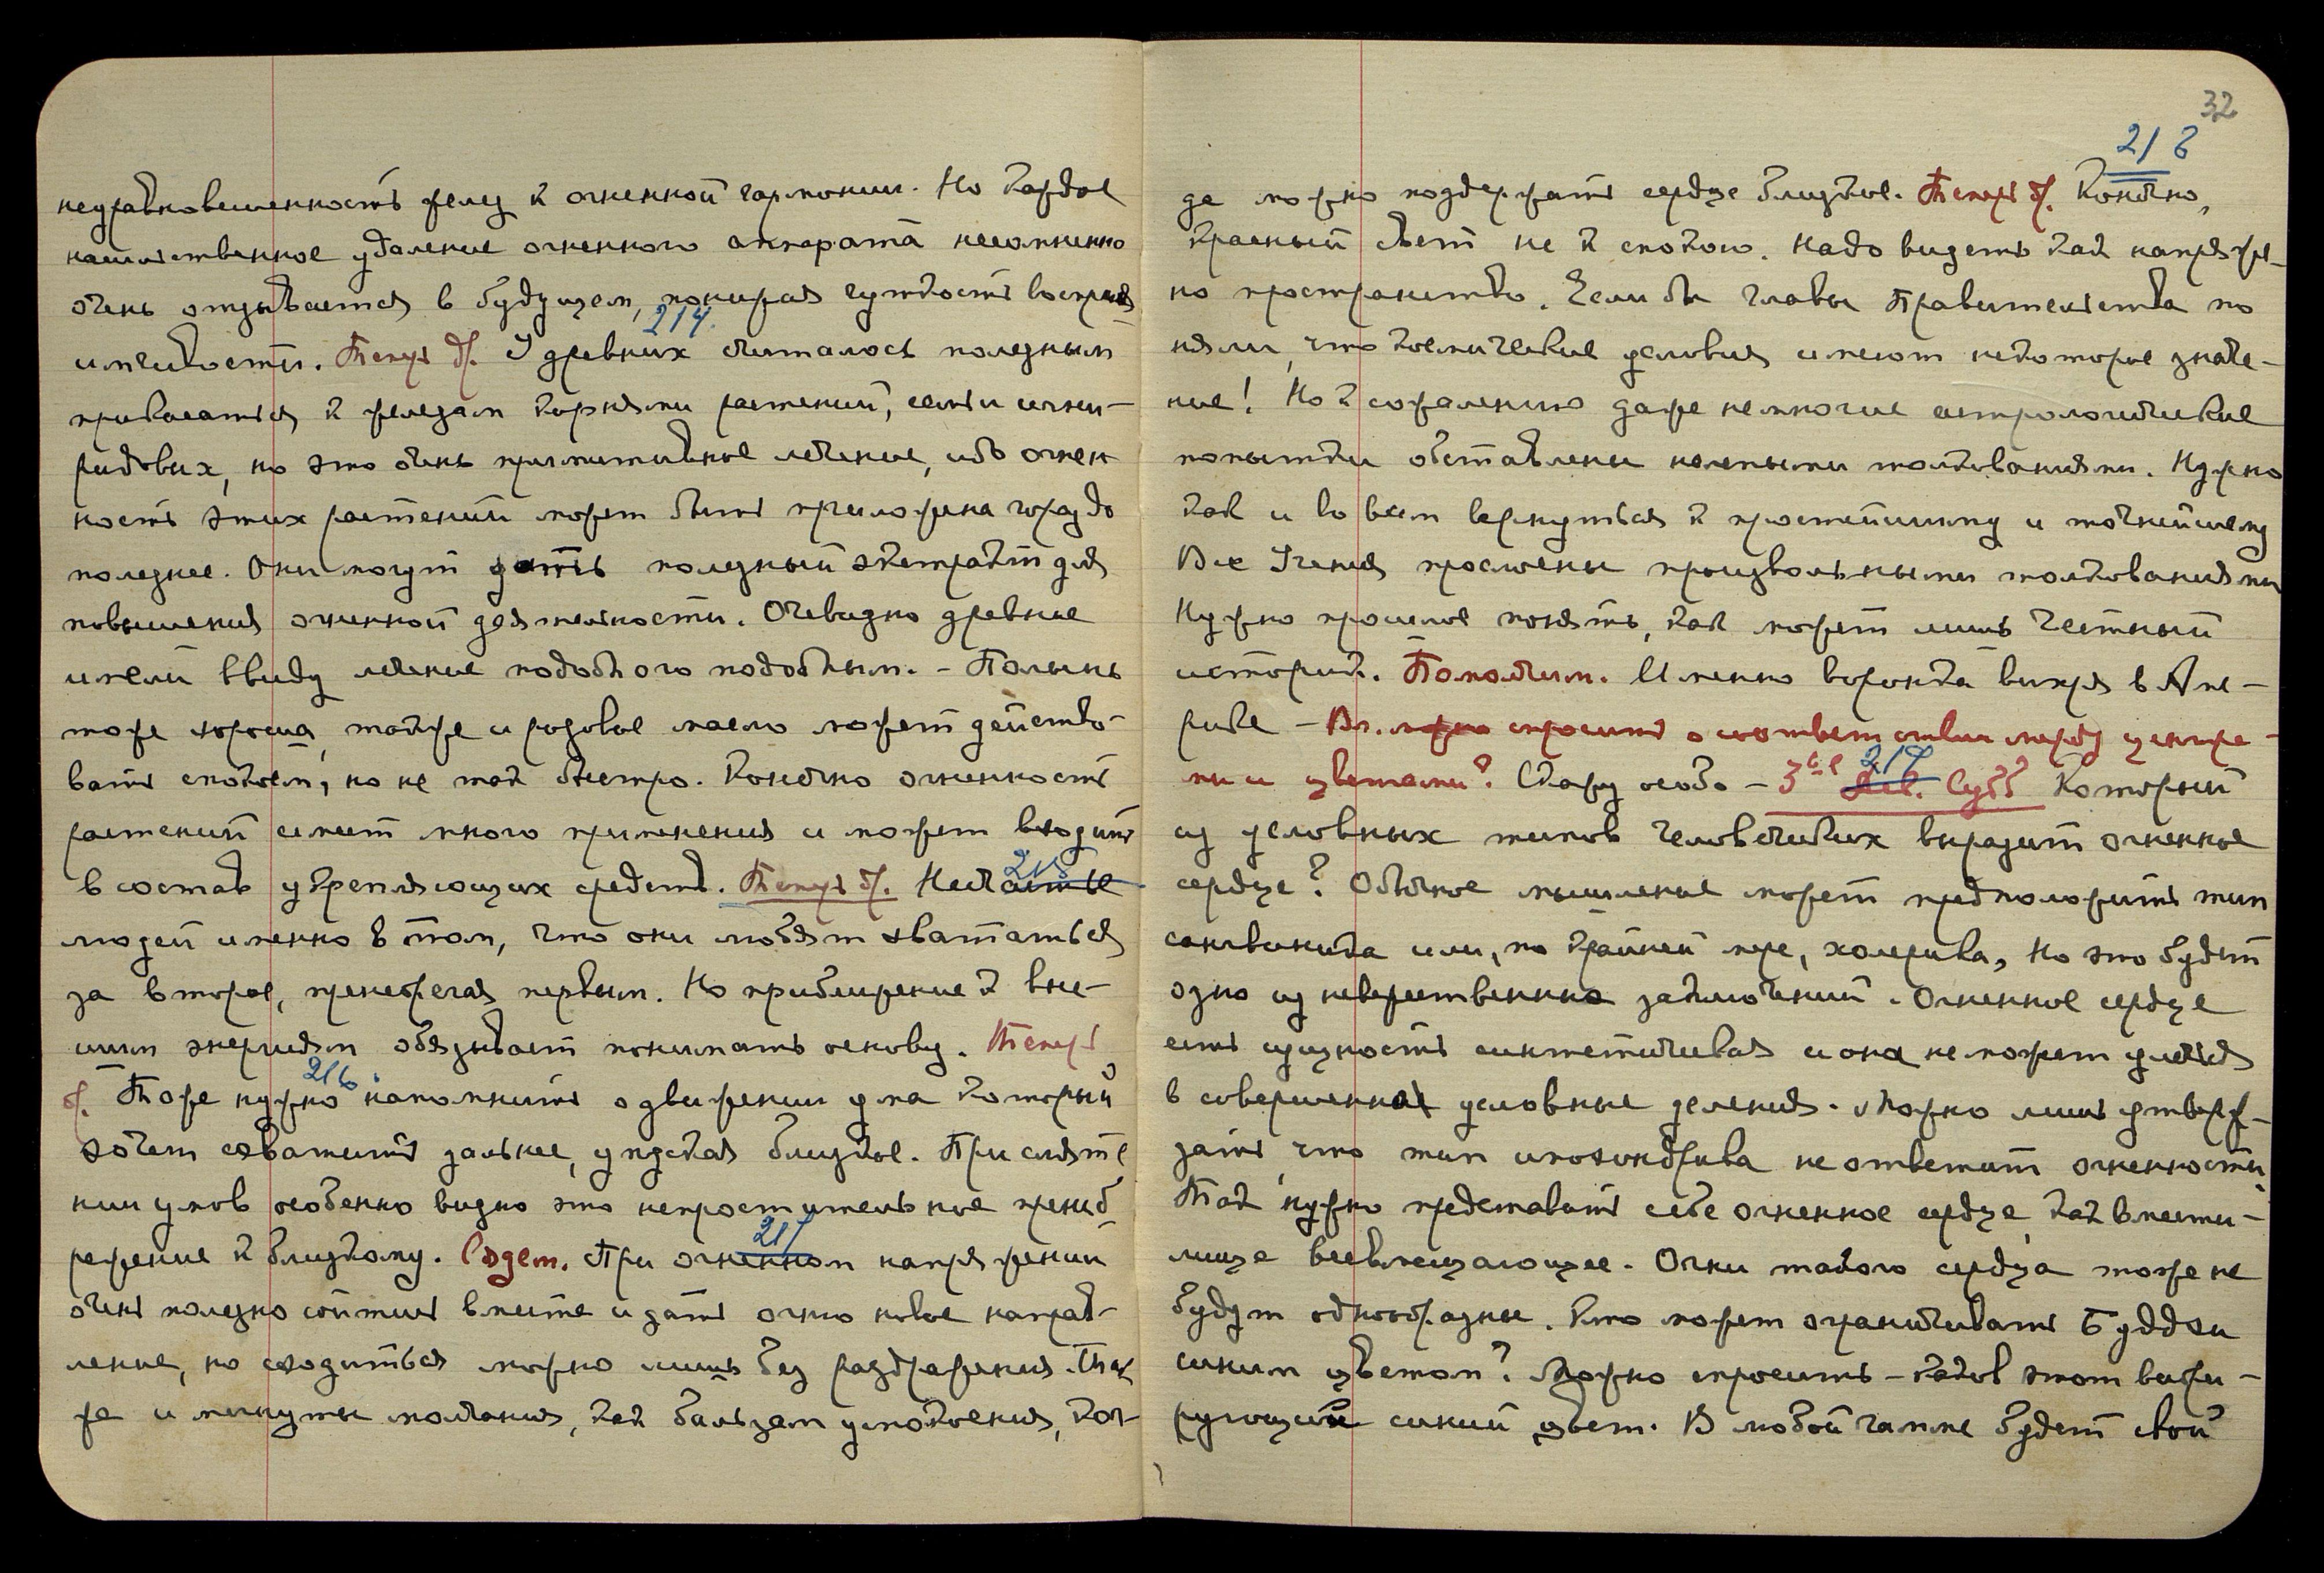 неуравновешенность желез к огненной гармонии. Но каждое
насильственное удаление огненного аппарата несомненно
очень отзывается в будущем, понижая чуткость воспри-
имчивости. Теперь др. 214. У древних считалось полезным
прикасаться к железам корнями растений, семьи
но это очень примитивное лечение, ибо огнен
ность этих растений может быть приложена гораздо
полезнее. Они могут дать полезный экстракт для
повышения огненной деятельности. Очевидно древние
имели ввиду лечение подобного подобным. – Полынь
тоже хороша, также и розовое масло может действо-
вать спокоем, но не так быстро. Конечно огненность
растений имеет много применения и может входить
в состав укрепляющих средств. Теперь др. 215 Несчастье
людей именно в том, что они любят хвататься
за второе, пренебрегая первым. Но приближение к выс-
шим энергиям обязывает понимать основу. Теперь
др. 216 Тоже нужно напомнить о движении ума который
хочет схватить дальнее, упуская близкое. При смяте
нии умов особенно видно это непростительное пренеб-
режение к близкому. Сядем. 217 При огненном напряжении
очень полезно сойтись вместе и дать огню новое направ-
ление, но сходиться можно лишь без раздражения. Так
же и минуты молчания, как бальзам успокоения, ког-
32
да можно поддержать сердце близкое. Теперь др. 218 Конечно,
красный свет не к спокою. Надо видеть как напряже-
но пространство. Если бы главы Правительства по
няли, что космические условия имеют некоторое значе-
ние! Но к сожалению даже немногие астрологические
попытки обставлены нелепыми толкованиями. Нужно
как и во всем вернуться к простейшему и точнейшему
Все Учения прослоены произвольными толкованиями
Нужно прошлое понять, как может лишь честный
историк. Помолчим. Именно воронка вихря в Аме-
рике – Вл. можно спросить о соответствии между центра-
ми и цветами? Скажу особо – 3ье Дек. Субб 219 Который
из условных типов человеческих выразит огненное
сердце? Обычное мышление может предположить тип
сангвиника или, по крайней мере, холерика, но это будет
одно из невежественных заключений. Огненное сердце
есть сущность синтетическая и она не может улечься
в совершенно условные деления. Можно лишь утверж-
дать что тип ипохондрика не ответит огненности.
Так нужно представить себе огненное сердце, как вмести-
лище всевмещающее. Огни такого сердца тоже не
будут однообразны. Кто может ограничивать Буддхи
синим цветом? Можно спросить – каков этот вибри-
рующий синий цвет. В любой гамме будет свой